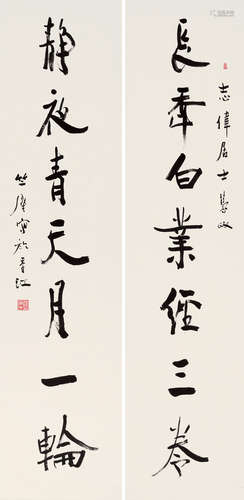 志偉居士慧政
長年白業經三卷
靜夜青天月一輪
竺摩寫於香江